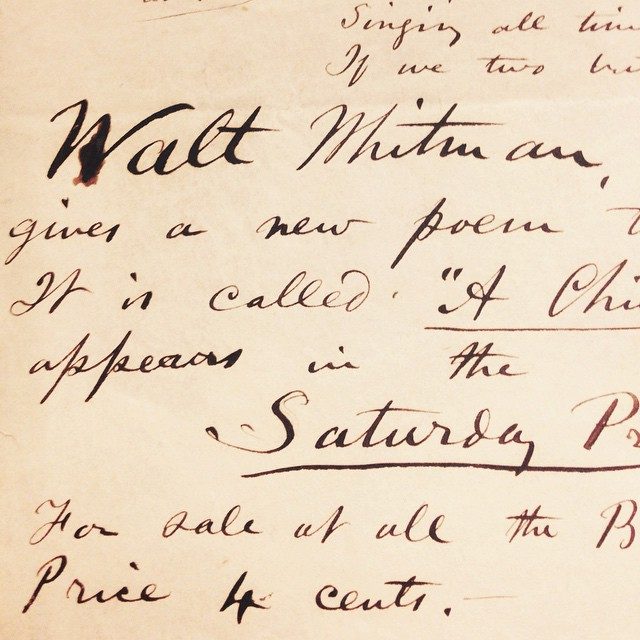 Singing all
If we two
Walt Whitman,
gives a new poem
It is called "A Chi
appears in the
Saturday Pr
For sale at all the B
Price 4 cents.—